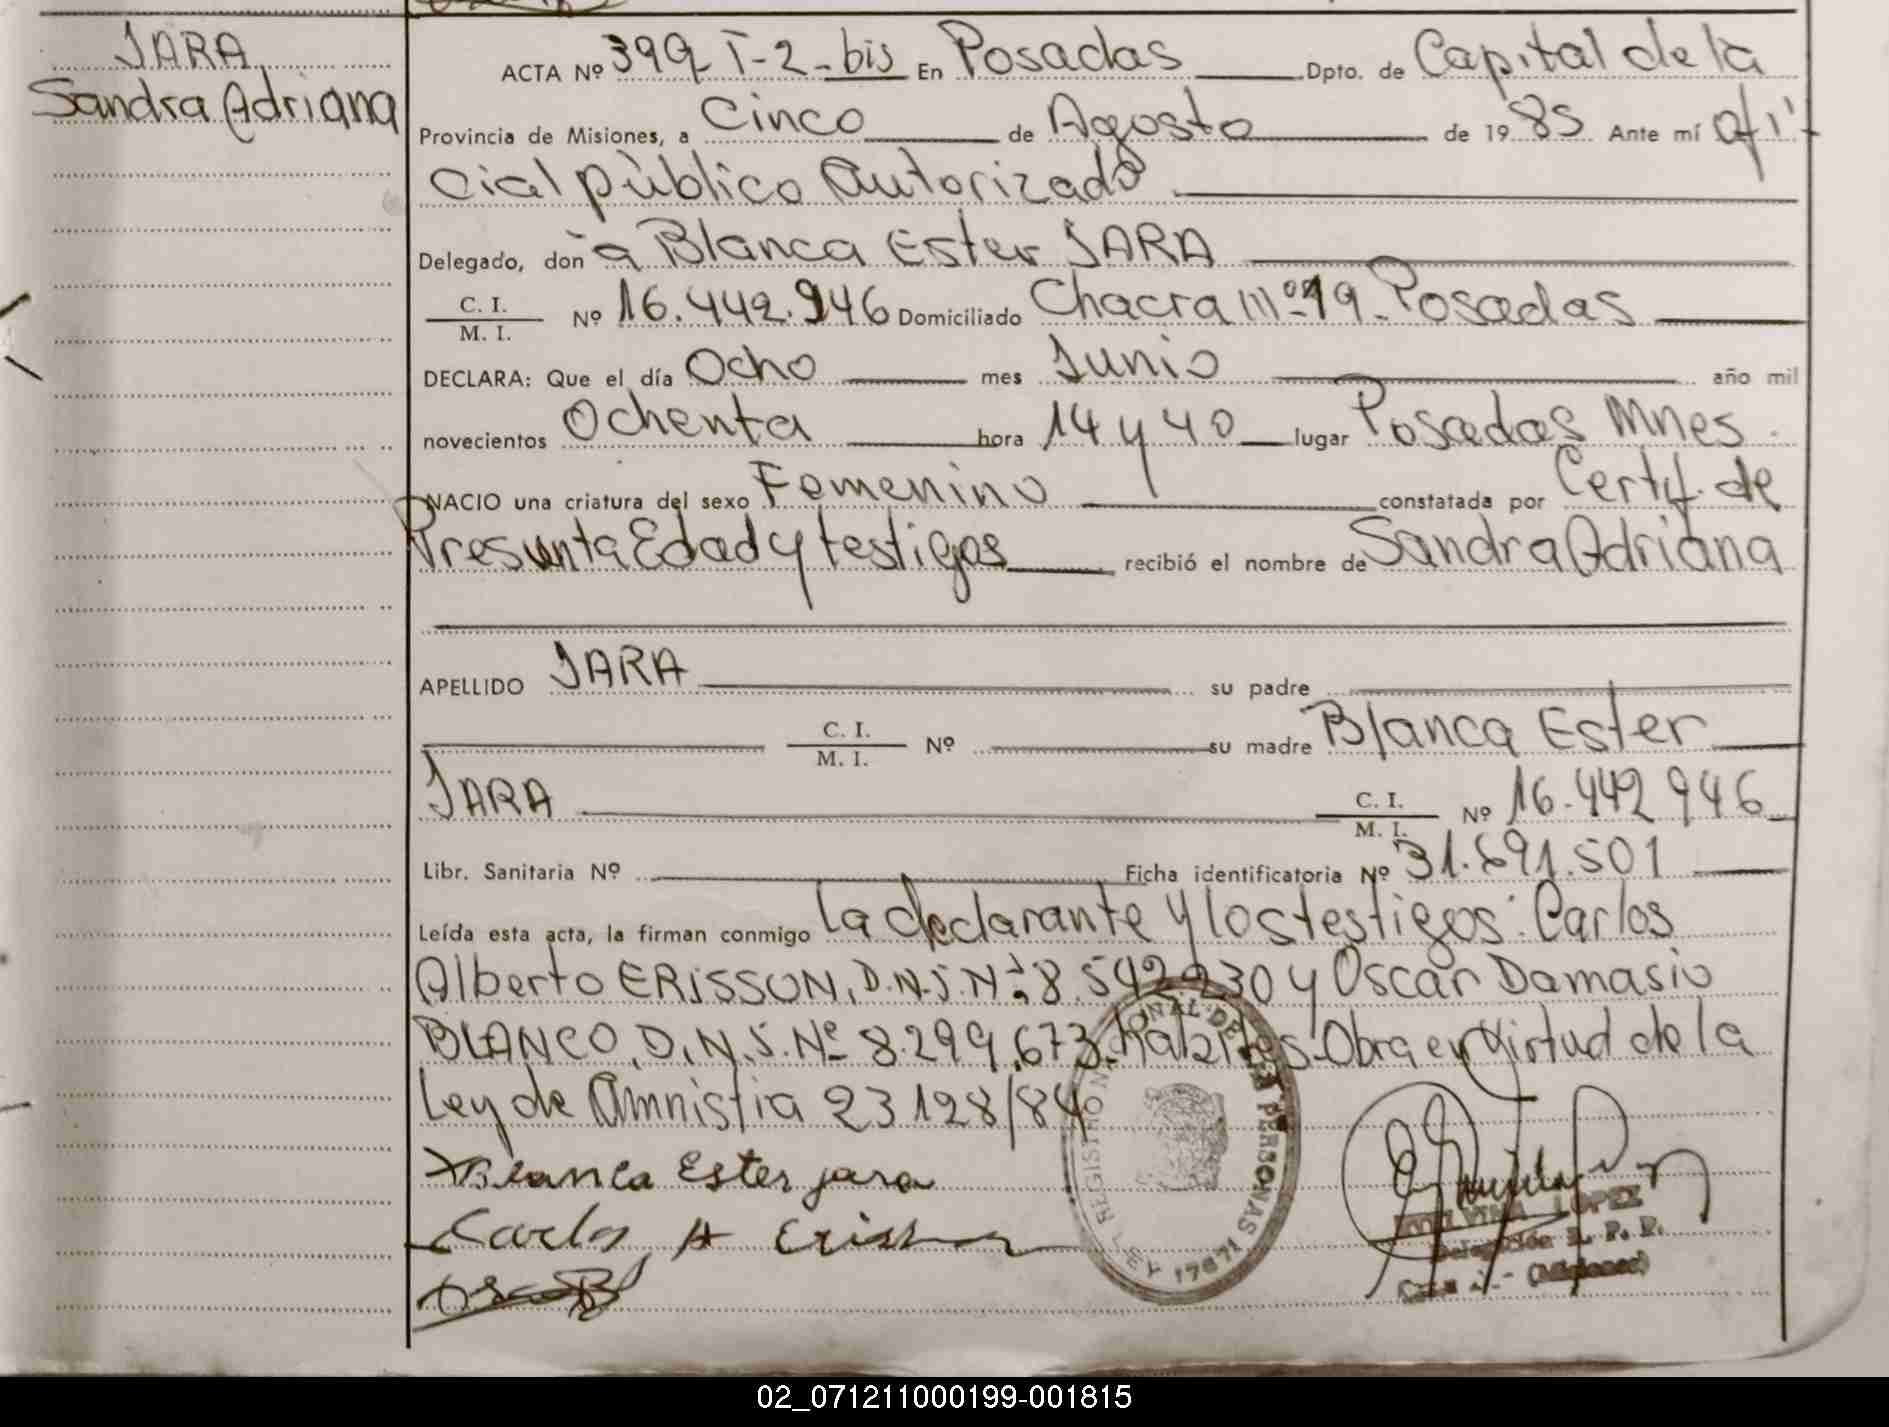 JARA
Sandra Adriana
ACTA Nº 399 T-2-bis En Posadas Dpto. de Capital de la
Provincia de Misiones, a Cinco de Agosto de 19 85 Ante mí ofi
cial público Autorizado
Delegado, don a Blanca Ester JARA
C. I.
M. I. Nº 16.442.946 Domiciliado Chacra Nº 19 - Posadas
DECLARA: Que el día Ocho mes Junio año mil
novecientos Ochenta hora 14 y 40 lugar Posadas Mnes.
NACIO una criatura del sexo Femenino constatada por Certif. de
Presunta Edad y testigos recibió el nombre de Sandra Adriana
APELLIDO JARA su padre
C. I.
M. I. Nº su madre Blanca Ester
JARA C. I.
M. I. Nº 16.442 946
Libr. Sanitaria Nº Ficha identificatoria Nº 31.691.501
Leída esta acta, la firman conmigo la declarante y los testigos: Carlos
Alberto ERISSON, D.N.I. Nº 8.542 230 y Oscar Damasio
BLANCO, D.N.I. Nº 8.299.673. habiles - Obra en virtud de la
Ley de Amnistia 23128/84
Blanca Ester jara
Carlos A Erisson
REGISTRO NACIONAL DE LAS PERSONAS LEY 17671
LOPEZ
Delegación R. P. P.
(Misiones)
02_071211000199-001815